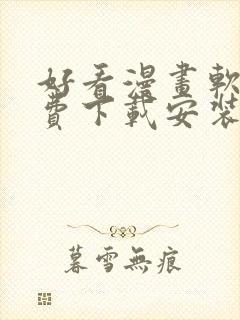 好看漫畫軟
費下載安裝
暮雪無痕